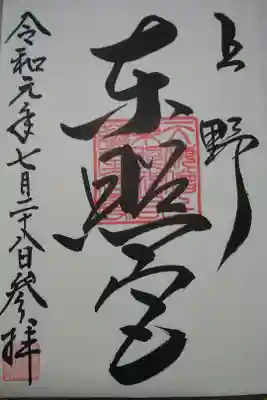 上野
東照宮
令和元年七月二十八日参拝